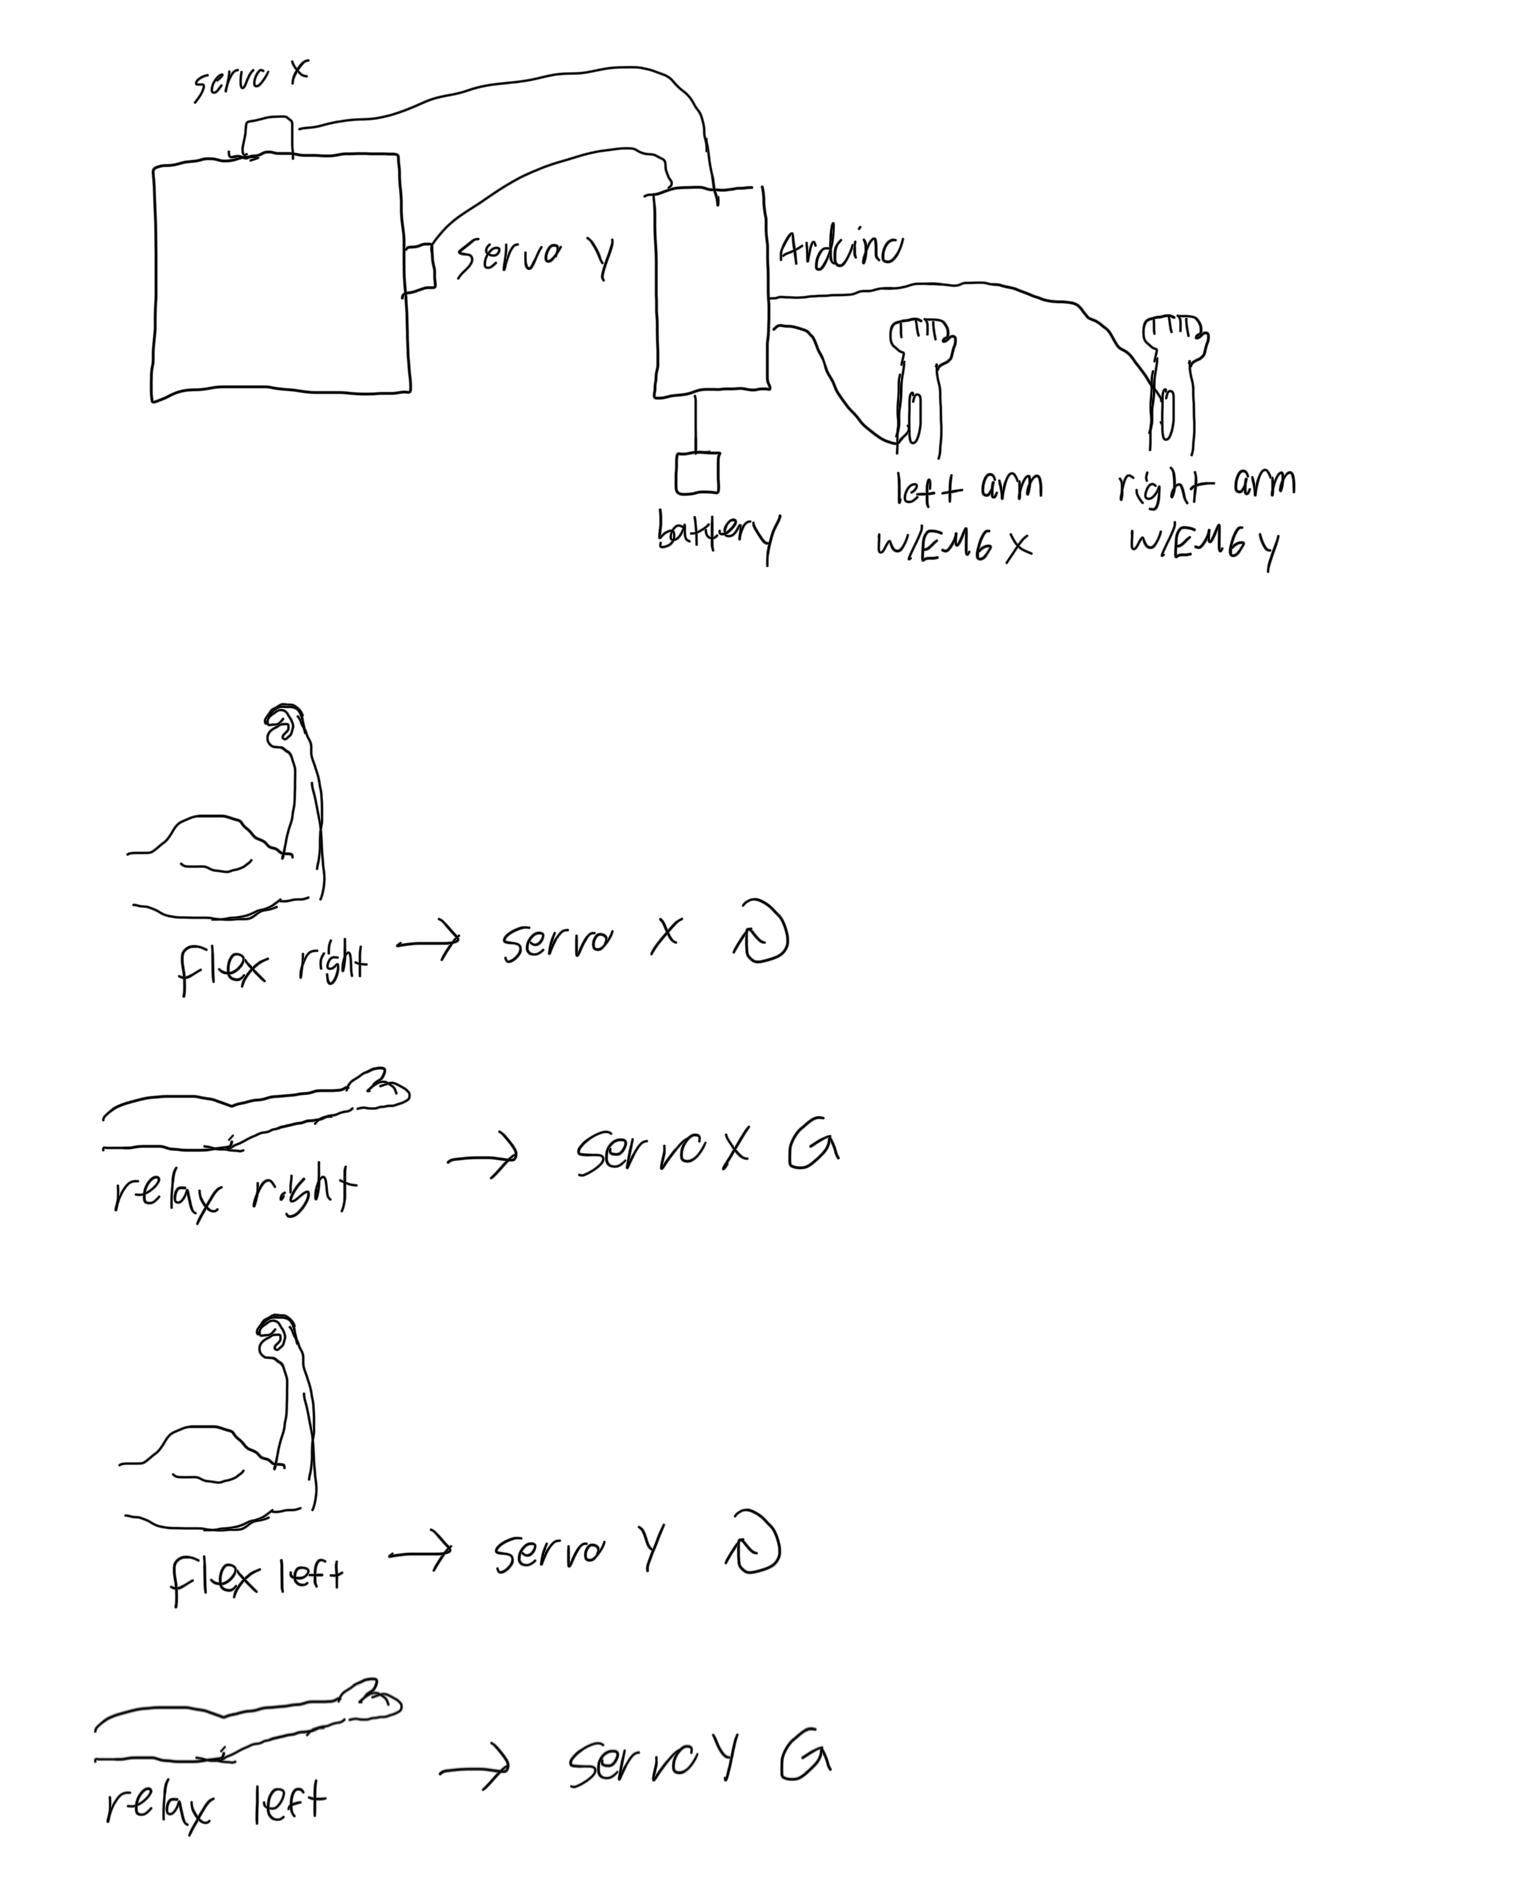 servo X
servo Y
Arduino
battery
left arm
W/EMG X
right arm
W/EMG Y
flex right → servo X
relax right → servo X
flex left → servo Y
relax left → servo Y